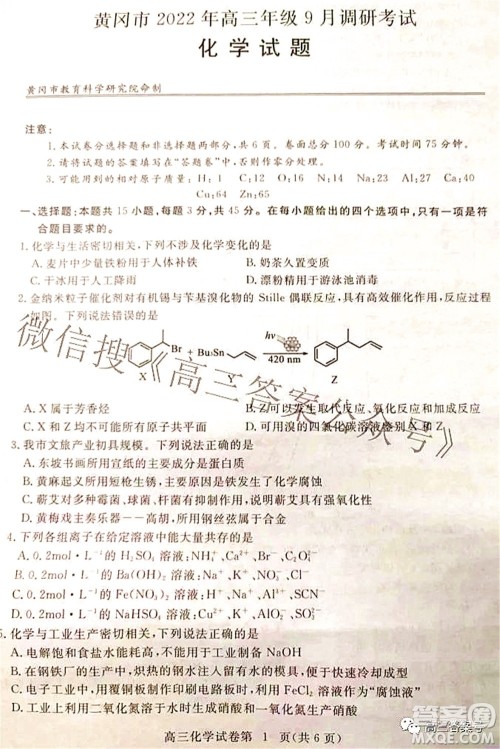 黄冈市 2022 年高三年级 9 月调研考试
化学试题
黄冈市教育科学研究院命制
注意：
1.本试卷分选择题和非选择题两部分，共 6 页。卷面总分 100 分。考试时间 75 分钟。
2.请将试题的答案填写在“答题卷”中，否则作零分处理。
3.可能用到的相对原子质量：H：1 C：12 O：16 N：14 Na：23 Al：27 Ca：40
Cu：64 Zn：65
一、选择题：本题共 15 小题，每题 3 分，共 45 分。在每小题给出的四个选项中，只有一项是符
合题目要求的。
1.化学与生活密切相关，下列不涉及化学变化的是
A.麦片中少量铁粉用于人体补铁 B.奶茶久置变质
C.干冰用于人工降雨 D.漂粉精用于游泳池消毒
2.金纳米粒子催化剂对有机锡与苄基溴化物的 Stille 偶联反应，具有高效催化作用，反应过程
如图。下列说法错误的是
Br + Bu₃Sn hν 420 nm
X Y Z
A.X 属于芳香烃 B.Z 可以发生取代反应、氧化反应和加成反应
C.X 和 Z 均不可能所有原子共平面 D.可用溴的四氯化碳溶液鉴别 X 和 Z
3.我市文旅产业初具规模。下列说法正确的是
A.东坡书画所用宣纸的主要成分是蛋白质
B.黄麻起义所用短枪生锈，主要原因是铁发生了化学腐蚀
C.蕲艾对多种霉菌、球菌、杆菌有抑制作用，说明蕲艾能使蛋白质变性
D.黄梅戏主奏乐器——高胡，所用钢丝弦属于合金
4.下列各组离子在给定溶液中能大量共存的是
A.0.2mol·L⁻¹ 的 H₂SO₄ 溶液：NH₄⁺、Ca²⁺、Br⁻、Cr₂O₇²⁻
B.0.2mol·L⁻¹ 的 Ba(OH)₂ 溶液：Na⁺、K⁺、NO₃⁻、Cl⁻
C.0.2mol·L⁻¹ 的 Fe(NO₃)₂ 溶液：H⁺、K⁺、SO₄²⁻、Cl⁻
D.0.2mol·L⁻¹ 的 NaHSO₄ 溶液：Cu²⁺、K⁺、AlO₂⁻、SO₄²⁻
5.化学与工业生产密切相关，下列说法正确的是
A.电解饱和食盐水能耗高，不能用于工业制备 NaOH
B.在钢铁厂的生产中，炽热的钢水注入留有水的模具，便于快速冷却成型
C.电子工业中，用覆铜板制作印刷电路板时，利用 FeCl₂ 溶液作为“腐蚀液”
D.工业上将二氧化氮溶于水或碱溶液，用于生产硝酸或硝酸盐
高三化学试卷第 1 页(共 6 页)
微信搜《高三答案公众号》